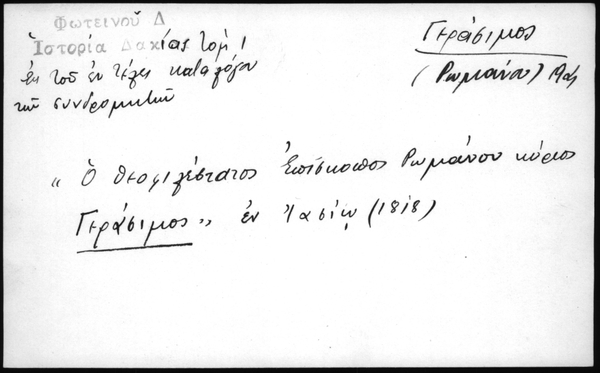 Φωτεινοῦ Δ
Ἱστορία Δακίας Τόμ 1
ἐκ τοῦ ἐν τέλει καταλόγου
τῶν συνδρομητῶν
Γεράσιμος
(Ρωμάνου)
« Ὁ θεοφιλέστατος Ἐπίσκοπος Ρωμάνου κύριος
Γεράσιμος » ἐν Ἰασίῳ (1818)